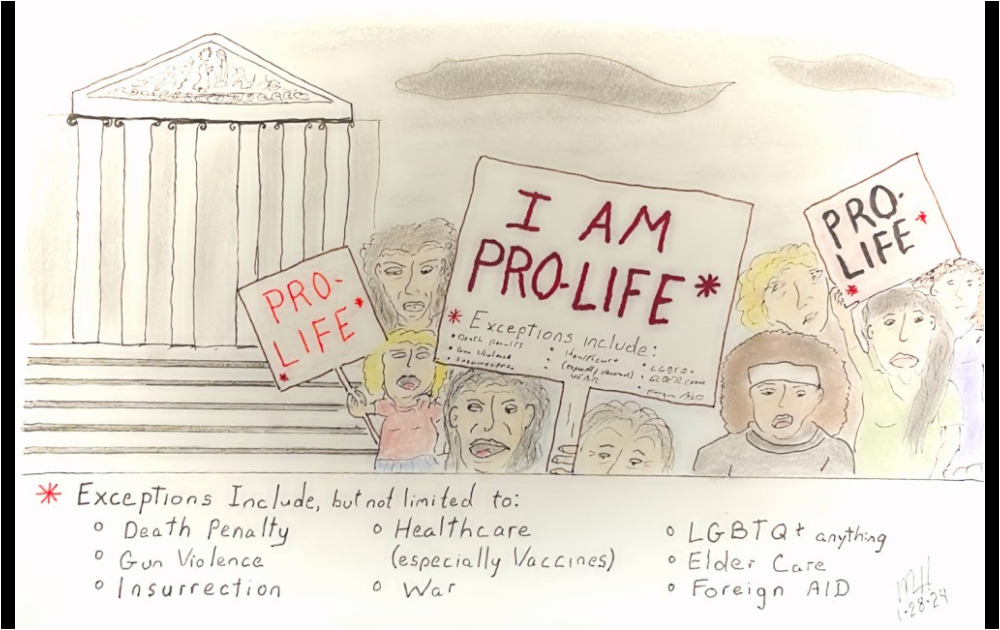 PRO-
LIFE*
*
I AM
PRO-LIFE*
* Exceptions include:
• Death Penalty
• Gun Violence
• Insurrection
• Healthcare
(especially Vaccines)
• WAR
• LGBTQ+
• ELDER Care
• Foreign AID
PRO-
LIFE*
*
* Exceptions Include, but not limited to:
° Death Penalty
° Gun Violence
° Insurrection
° Healthcare
(especially Vaccines)
° War
° LGBTQ+ anything
° Elder Care
° Foreign AID
MH
1·28·24